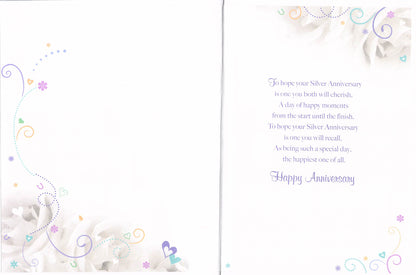 To hope your Silver Anniversary
is one you both will cherish,
A day of happy moments
from the start until the finish.
To hope your Silver Anniversary
is one you will recall,
As being such a special day,
the happiest one of all.
Happy Anniversary